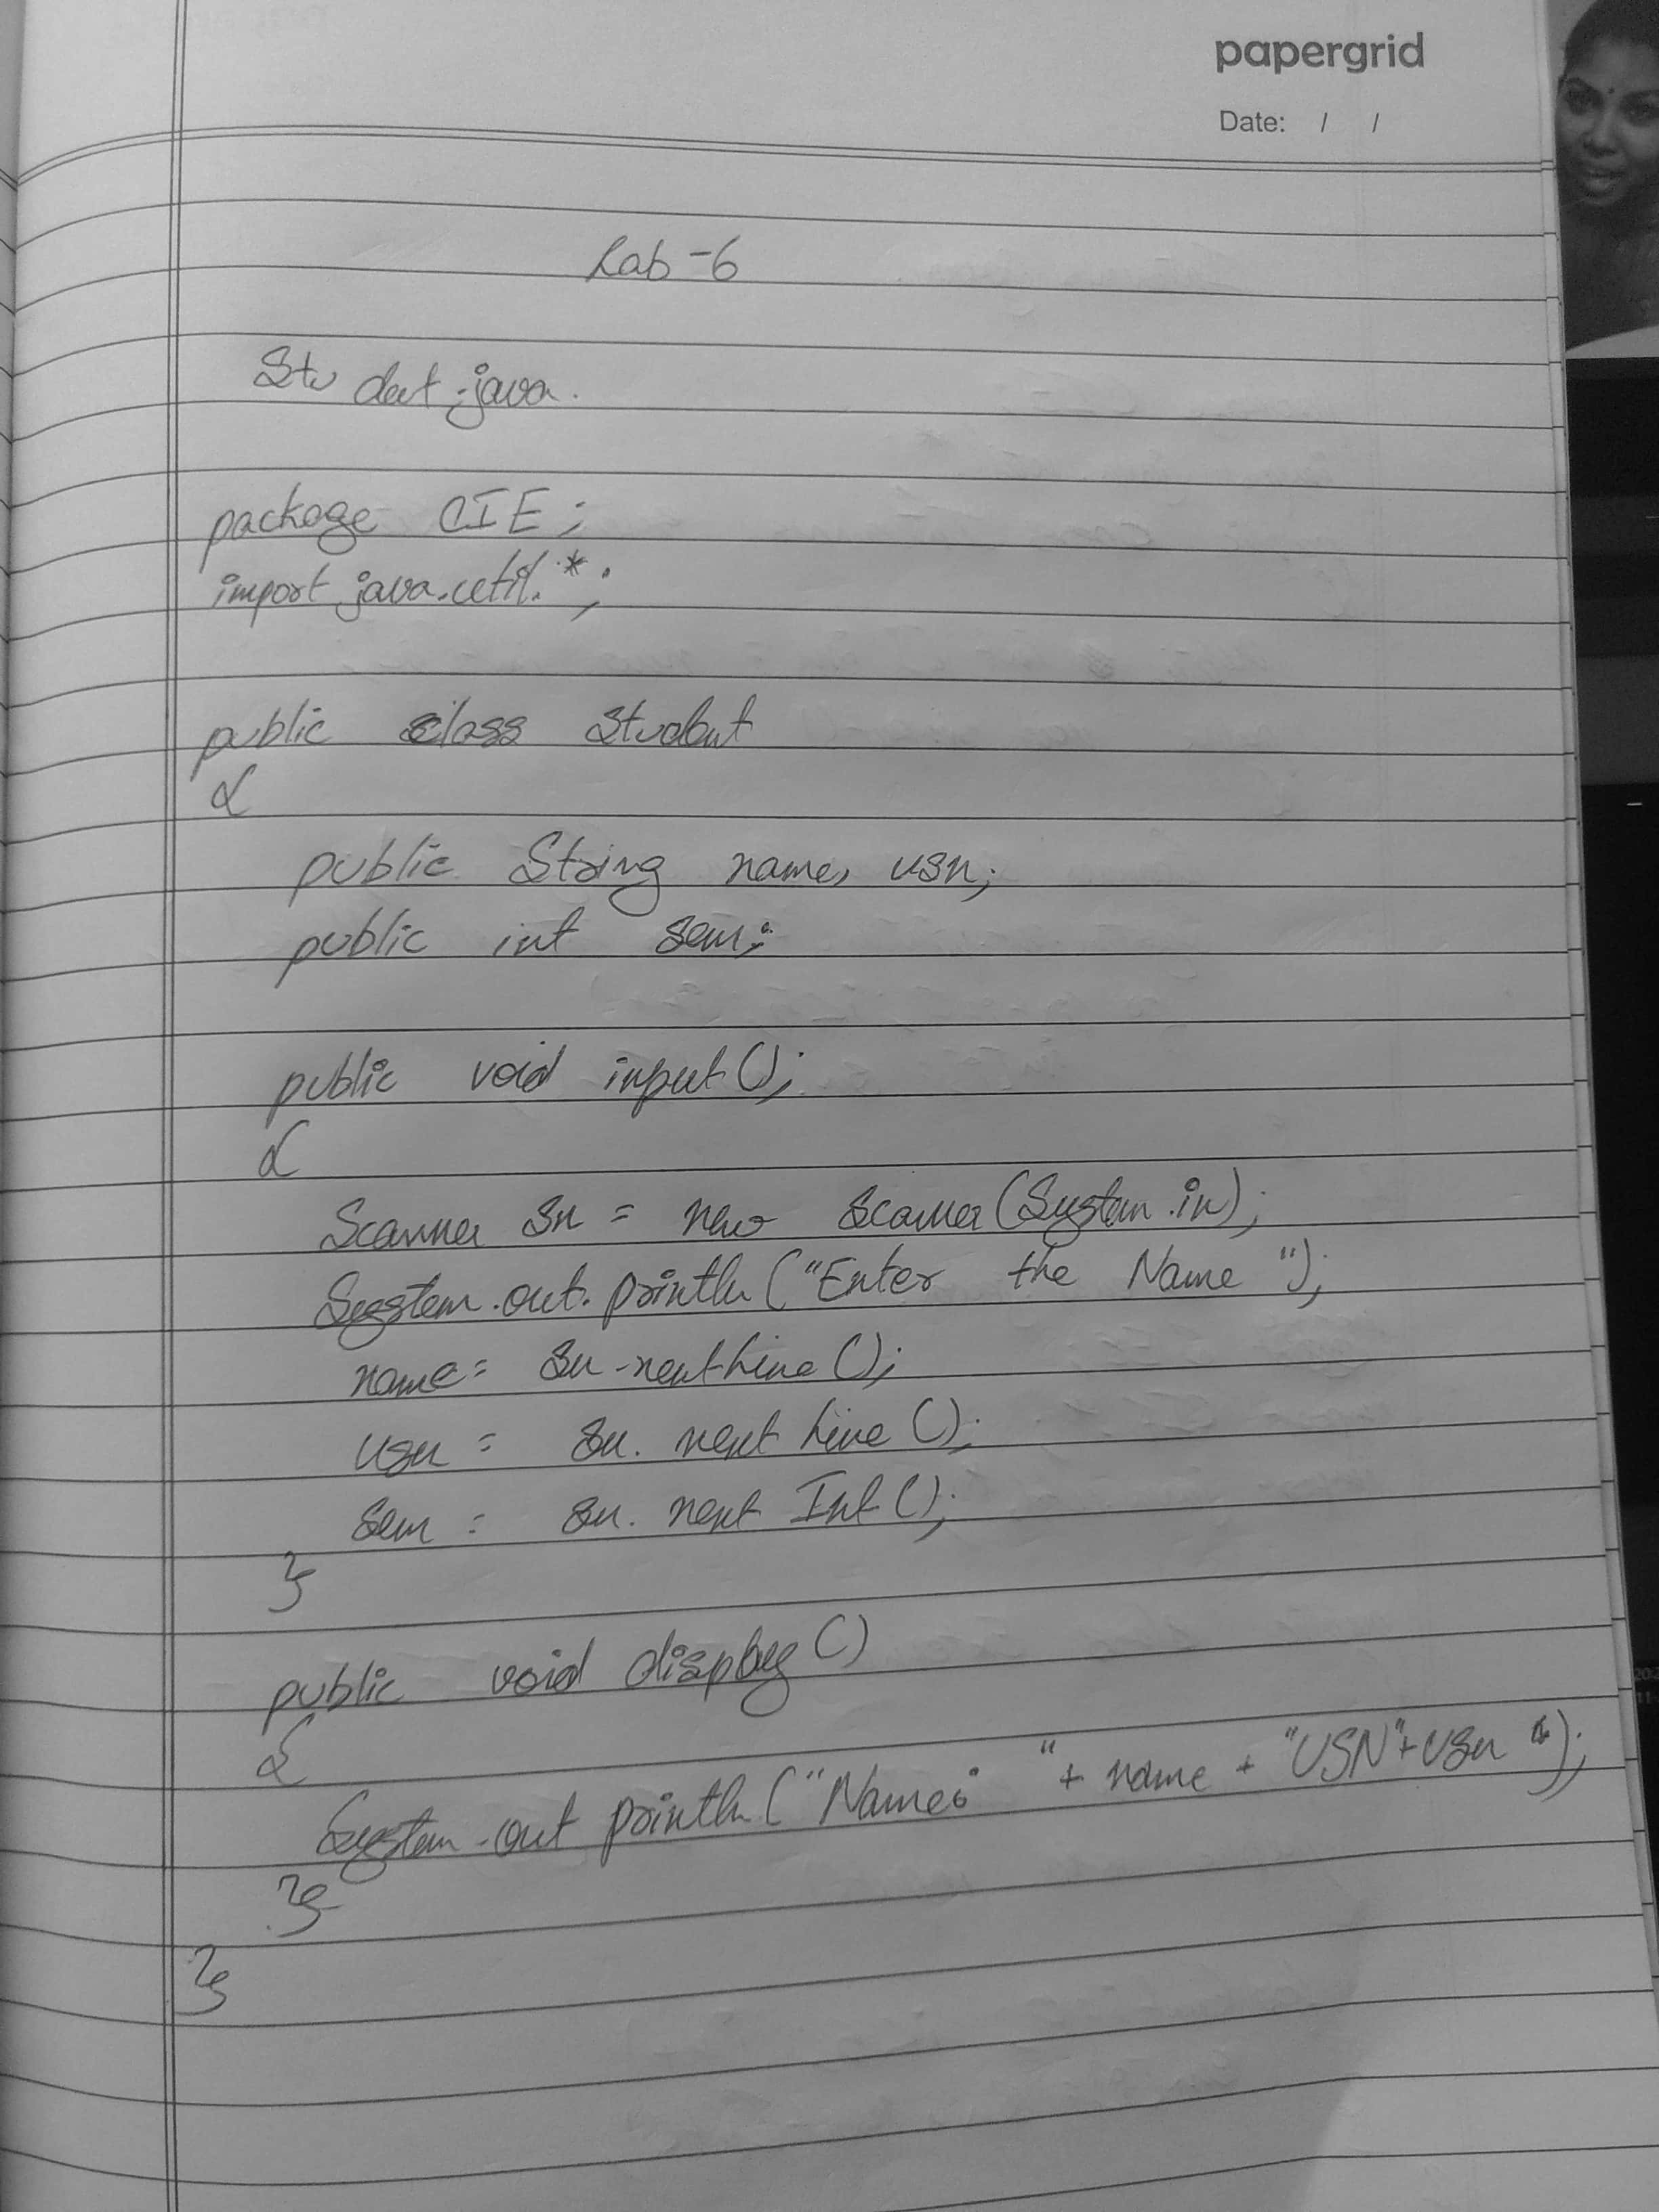 papergrid
Date: / /
Lab -6
Student.java.
package CIE;
import java.util.*;
public class Student
{
public String name, usn;
public int sem;
public void input();
{
Scanner sn = new Scanner(System.in);
System.out.println("Enter the Name ");
name= sn.nextLine();
usn = sn.nextLine();
sem = sn.next Int();
}
public void display()
{
System.out println("Name: "+ name + "USN"+usn ");
}
}